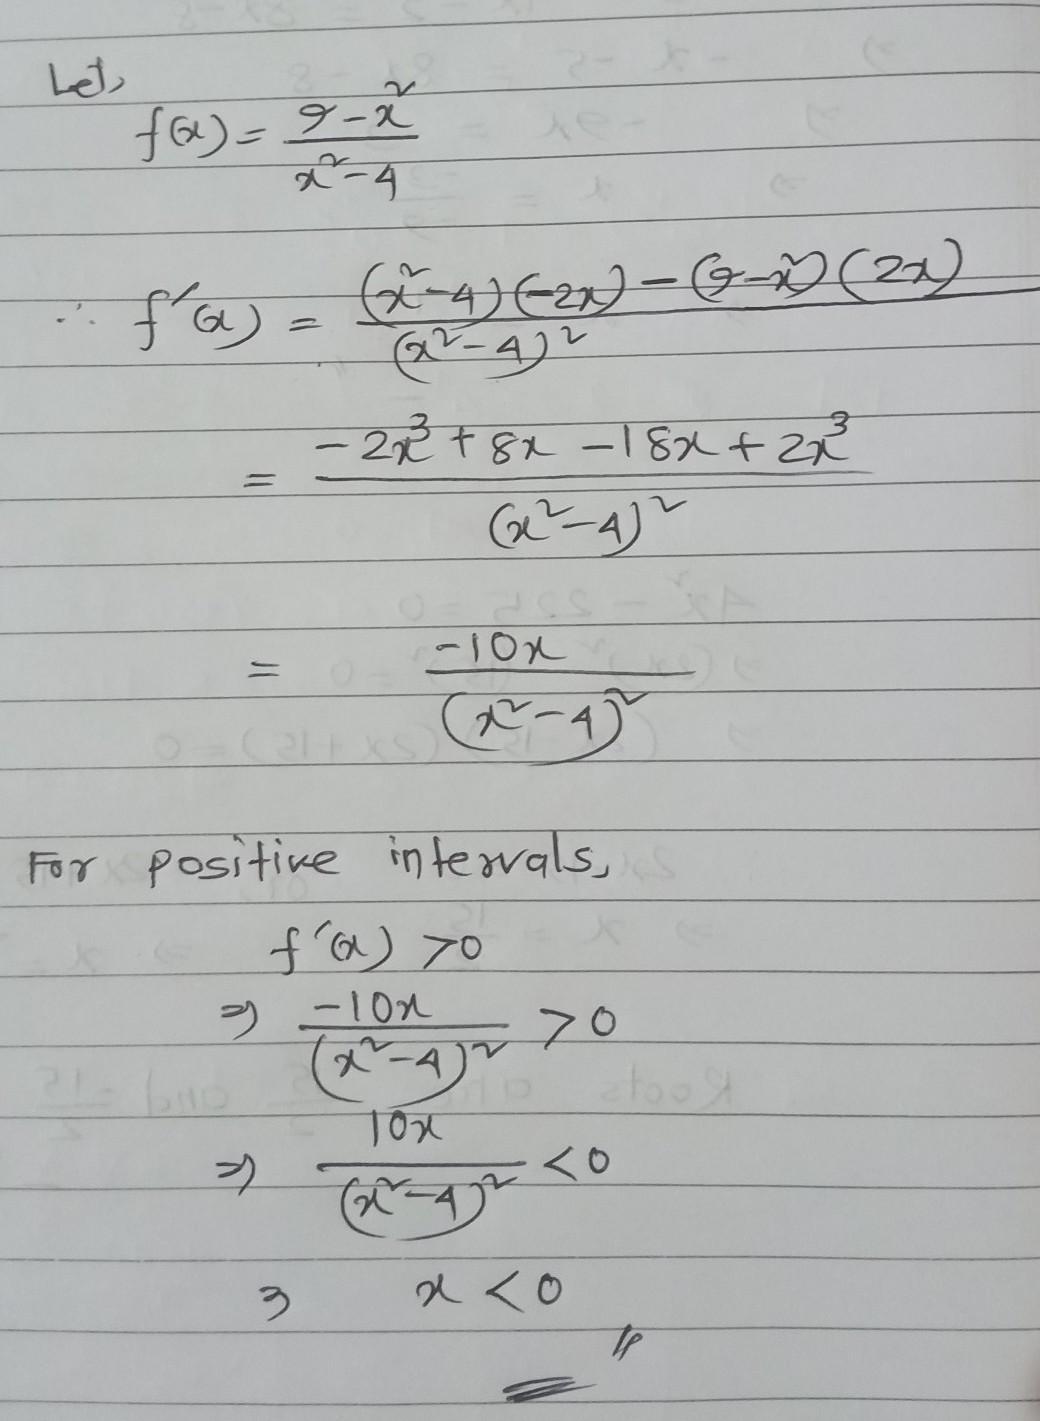 Let,
f(x) = (9-x²)/(x²-4)
∴ f'(x) = ((x²-4)(-2x) - (9-x²)(2x))/(x²-4)²
= (-2x³ + 8x - 18x + 2x³)/(x²-4)²
= (-10x)/(x²-4)²
For positive intervals,
f'(x) >0
⇒ (-10x)/(x²-4)² >0
⇒ (10x)/(x²-4)² <0
⇒ x <0